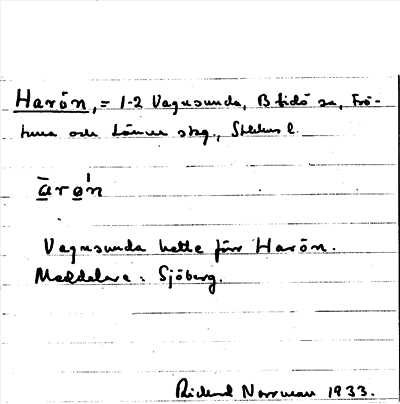 Harön, = 1-2 Vagnsunda, Blidö sn, Frö-
tuna och Länna skg., Sthlms l.
ārón
Vagnsunda hette förr Harön.
Meddelare: Sjöberg.
Rickard Norrman 1933.